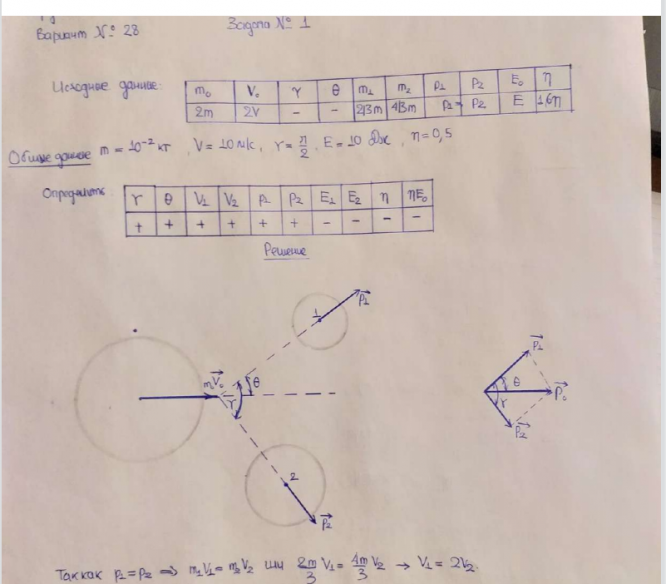 Вариант № 28
Задача № 1
Исходные данные:
m₀ V₀ γ θ m₁ m₂ p₁ p₂ E₀ η
2m 2V – – 2/3m 4/3m p₁= p₂ E 1,6η
Общие данные m = 10⁻² кг, V = 10 м/с, γ = π/2, E = 10 Дж, η = 0,5
Определить:
γ θ V₁ V₂ p₁ p₂ E₁ E₂ η ηE₀
+ + + + + + – – – –
Решение
1 p₁
p₁
m V₀ θ
θ p₀
γ
γ
p₂
2
p₂
Так как p₁=p₂ ⇒ m₁V₁ = m₂V₂ или 2m/3 V₁ = 4m/3 V₂ → V₁ = 2V₂.